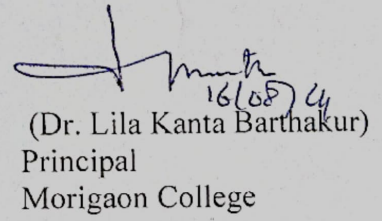 16/08/24
(Dr. Lila Kanta Barthakur)
Principal
Morigaon College